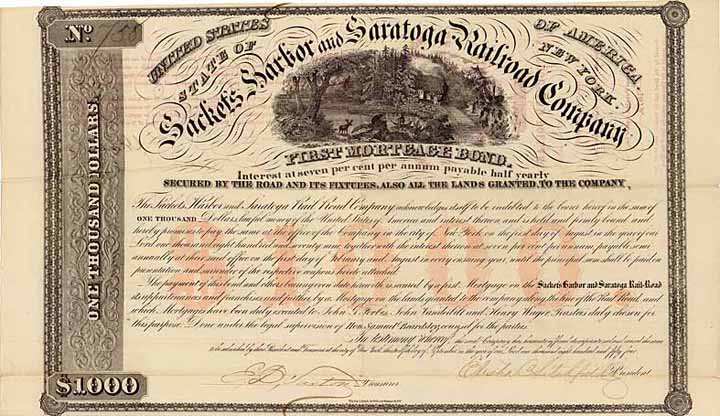 No. 
UNITED STATES OF AMERICA.
STATE OF NEW YORK.
Sackets Harbor and Saratoga Railroad Company
FIRST MORTGAGE BOND.
Interest at seven per cent per annum payable half yearly
SECURED BY THE ROAD AND ITS FIXTURES, ALSO ALL THE LANDS GRANTED, TO THE COMPANY,
ONE THOUSAND DOLLARS.
The Sackets Harbor and Saratoga Rail Road Company acknowledges itself to be indebted to the bearer hereof in the sum of
ONE THOUSAND Dollars, lawful money of the United States of America and interest thereon, and is held and firmly bound and
hereby promises to pay the same at the office of the Company in the city of New York on the first day of August in the year of our
Lord one thousand eight hundred and seventy nine together with the interest thereon at seven per cent per annum payable semi
annually at their said office on the first day of February and August in every ensuing year, until the principal sum shall be paid on
presentation and surrender of the respective coupons hereto attached.
The payment of this bond and others bearing even date herewith is secured by a first Mortgage on the Sackets Harbor and Saratoga Rail-Road
its appurtenances and franchises and further by a Mortgage on the lands granted to the company along the line of the Rail Road, and
which Mortgages have been duly executed to John S. Forbes, John Vanderbilt and Henry Wager Trustees duly chosen for
this purpose. Done under the legal supervision of Hon. Samuel Beardsley counsel for the parties.
In testimony whereof the said Company
the first day of September in the year of our Lord one thousand eight hundred and fifty four
Treasurer
President
$1000
$1000